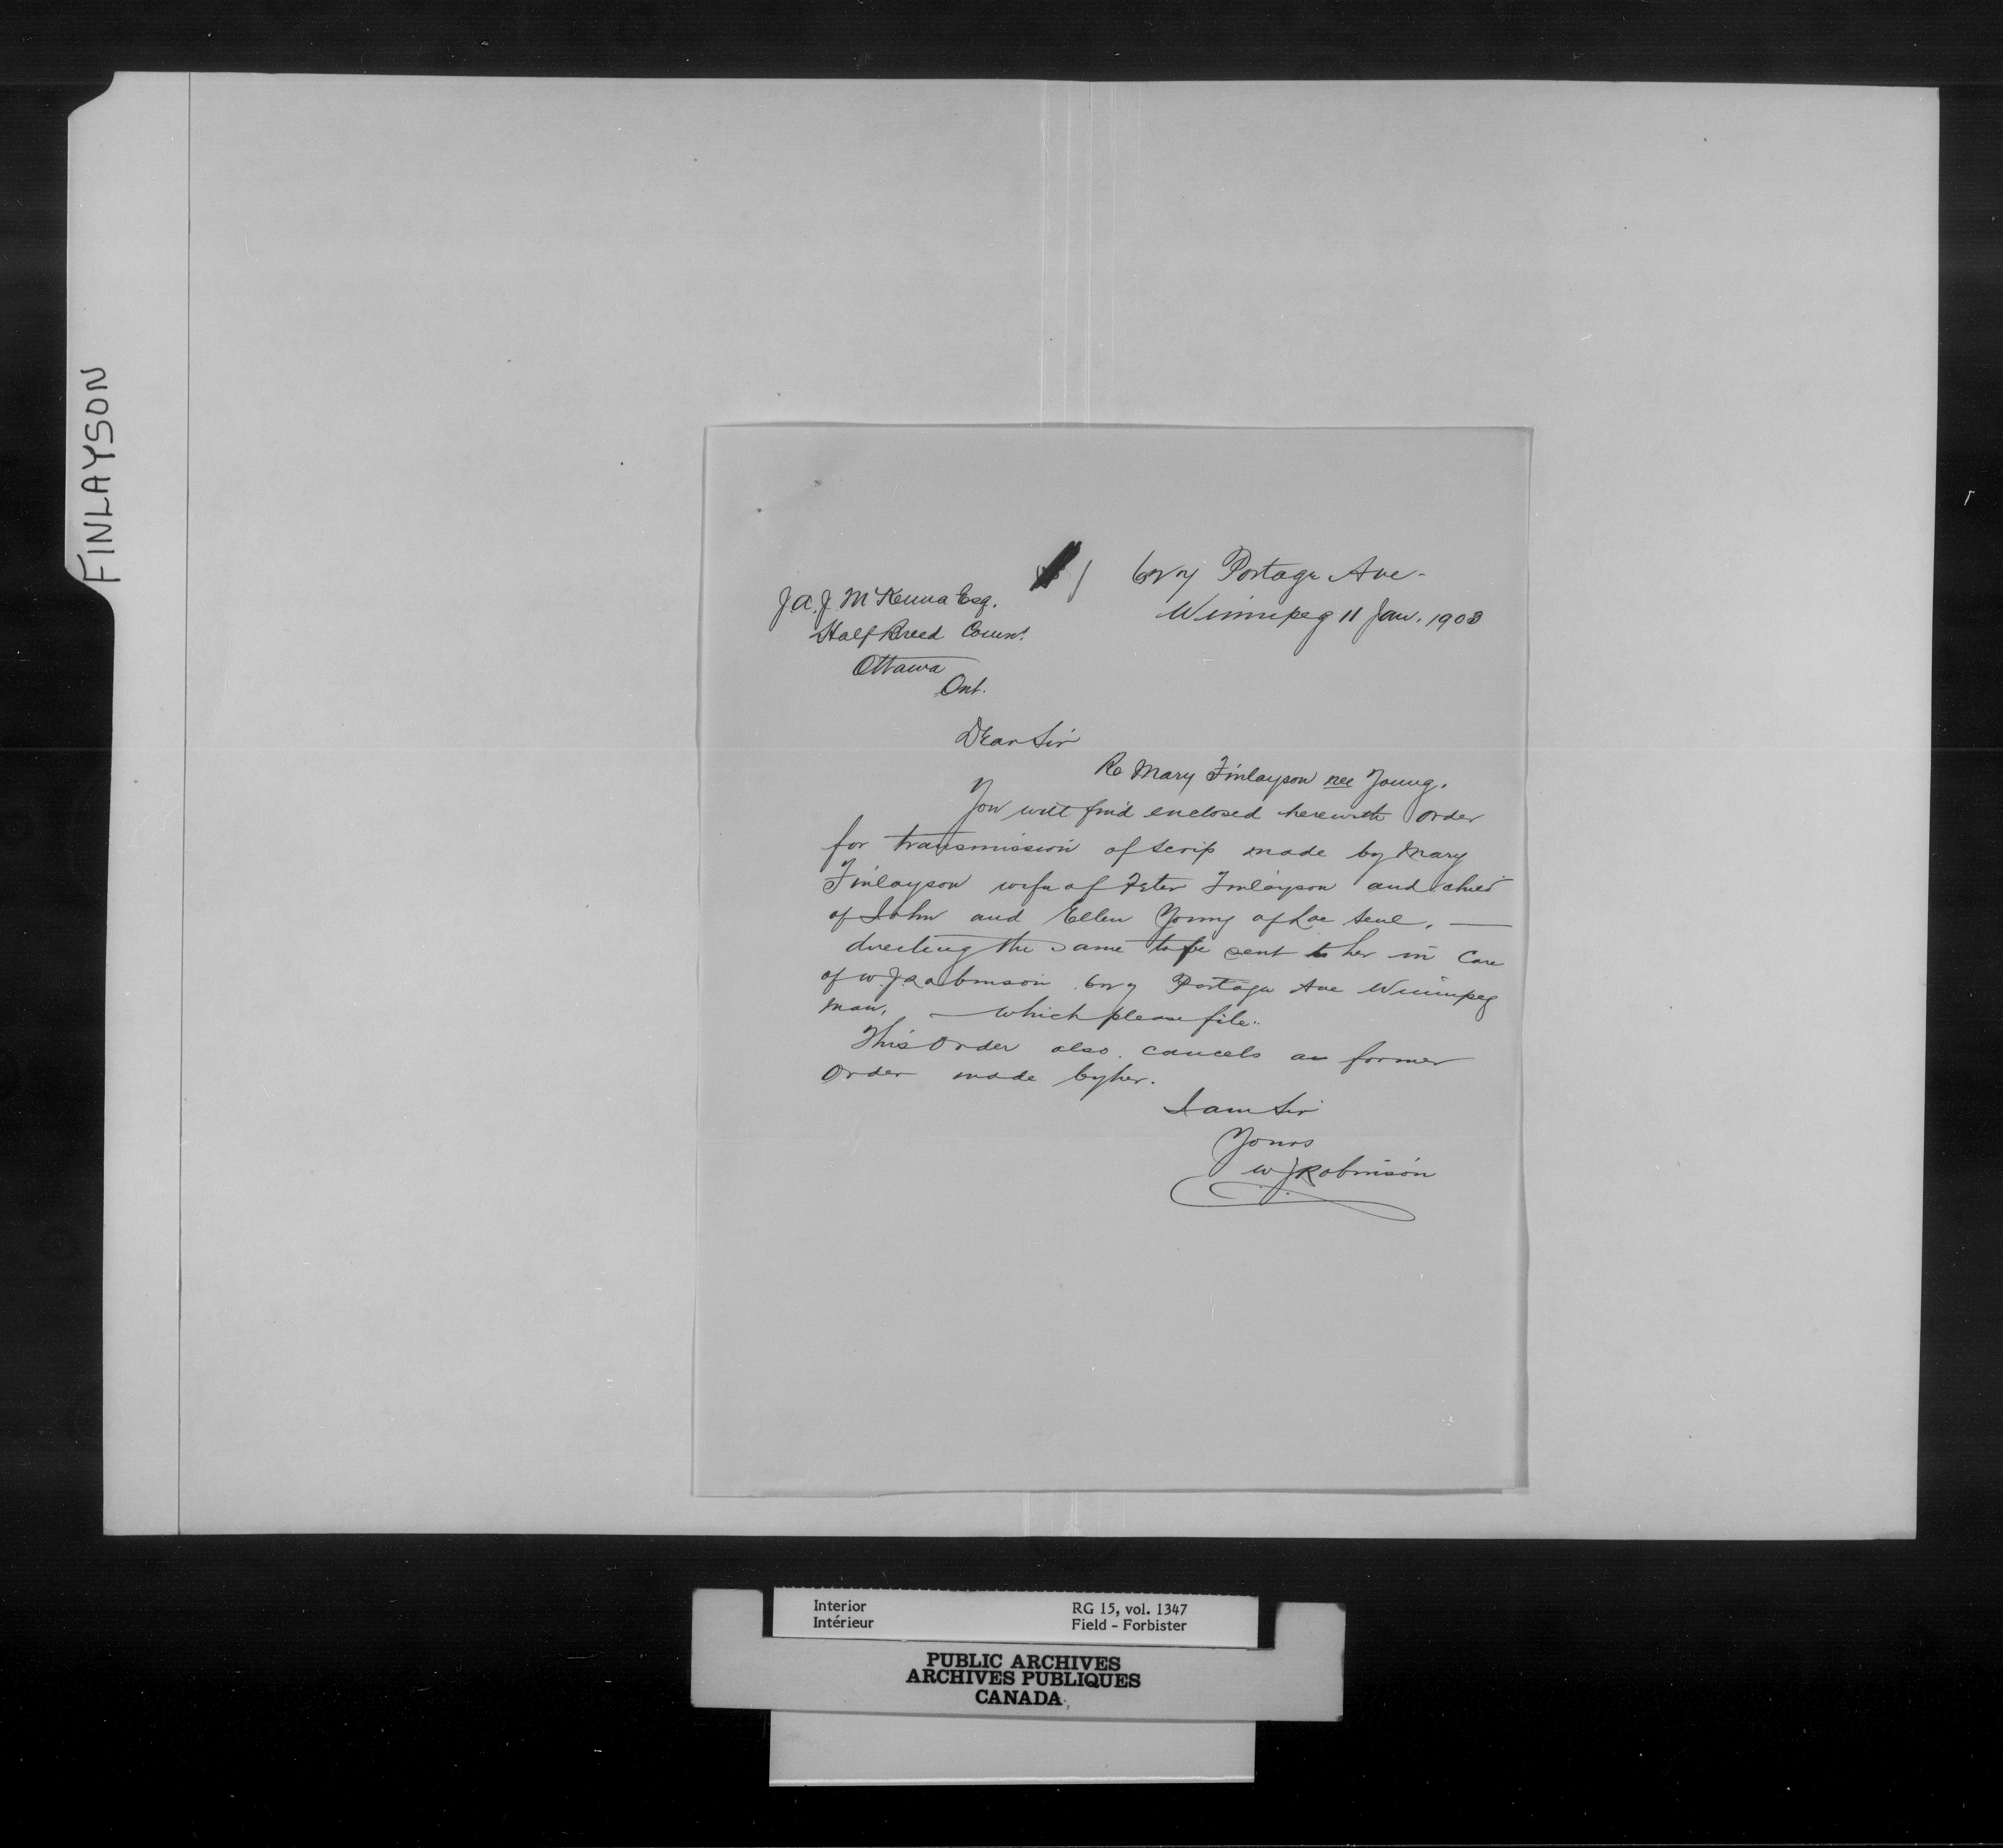 FINLAYSON
627 Portage Ave -
Winnipeg 11 Jan. 1903
J A. J McKenna Esq.
Half Breed Comr.
Ottawa
Ont.
Dear Sir
Re Mary Finlayson nee Young.
You will find enclosed herewith order
for transmission of scrip made by Mary
Finlayson wife of Peter Finlayson and child
of John and Ellen Young of Lac Seul. —
directing the same to be sent to her in care
of W. J. Robinson 627 Portage Ave Winnipeg
Man, — which please file.
This Order also cancels a former
Order made by her.
I am Sir
Yours
W J Robinson
Interior RG 15, vol. 1347
Intérieur Field - Forbister
PUBLIC ARCHIVES
ARCHIVES PUBLIQUES
CANADA